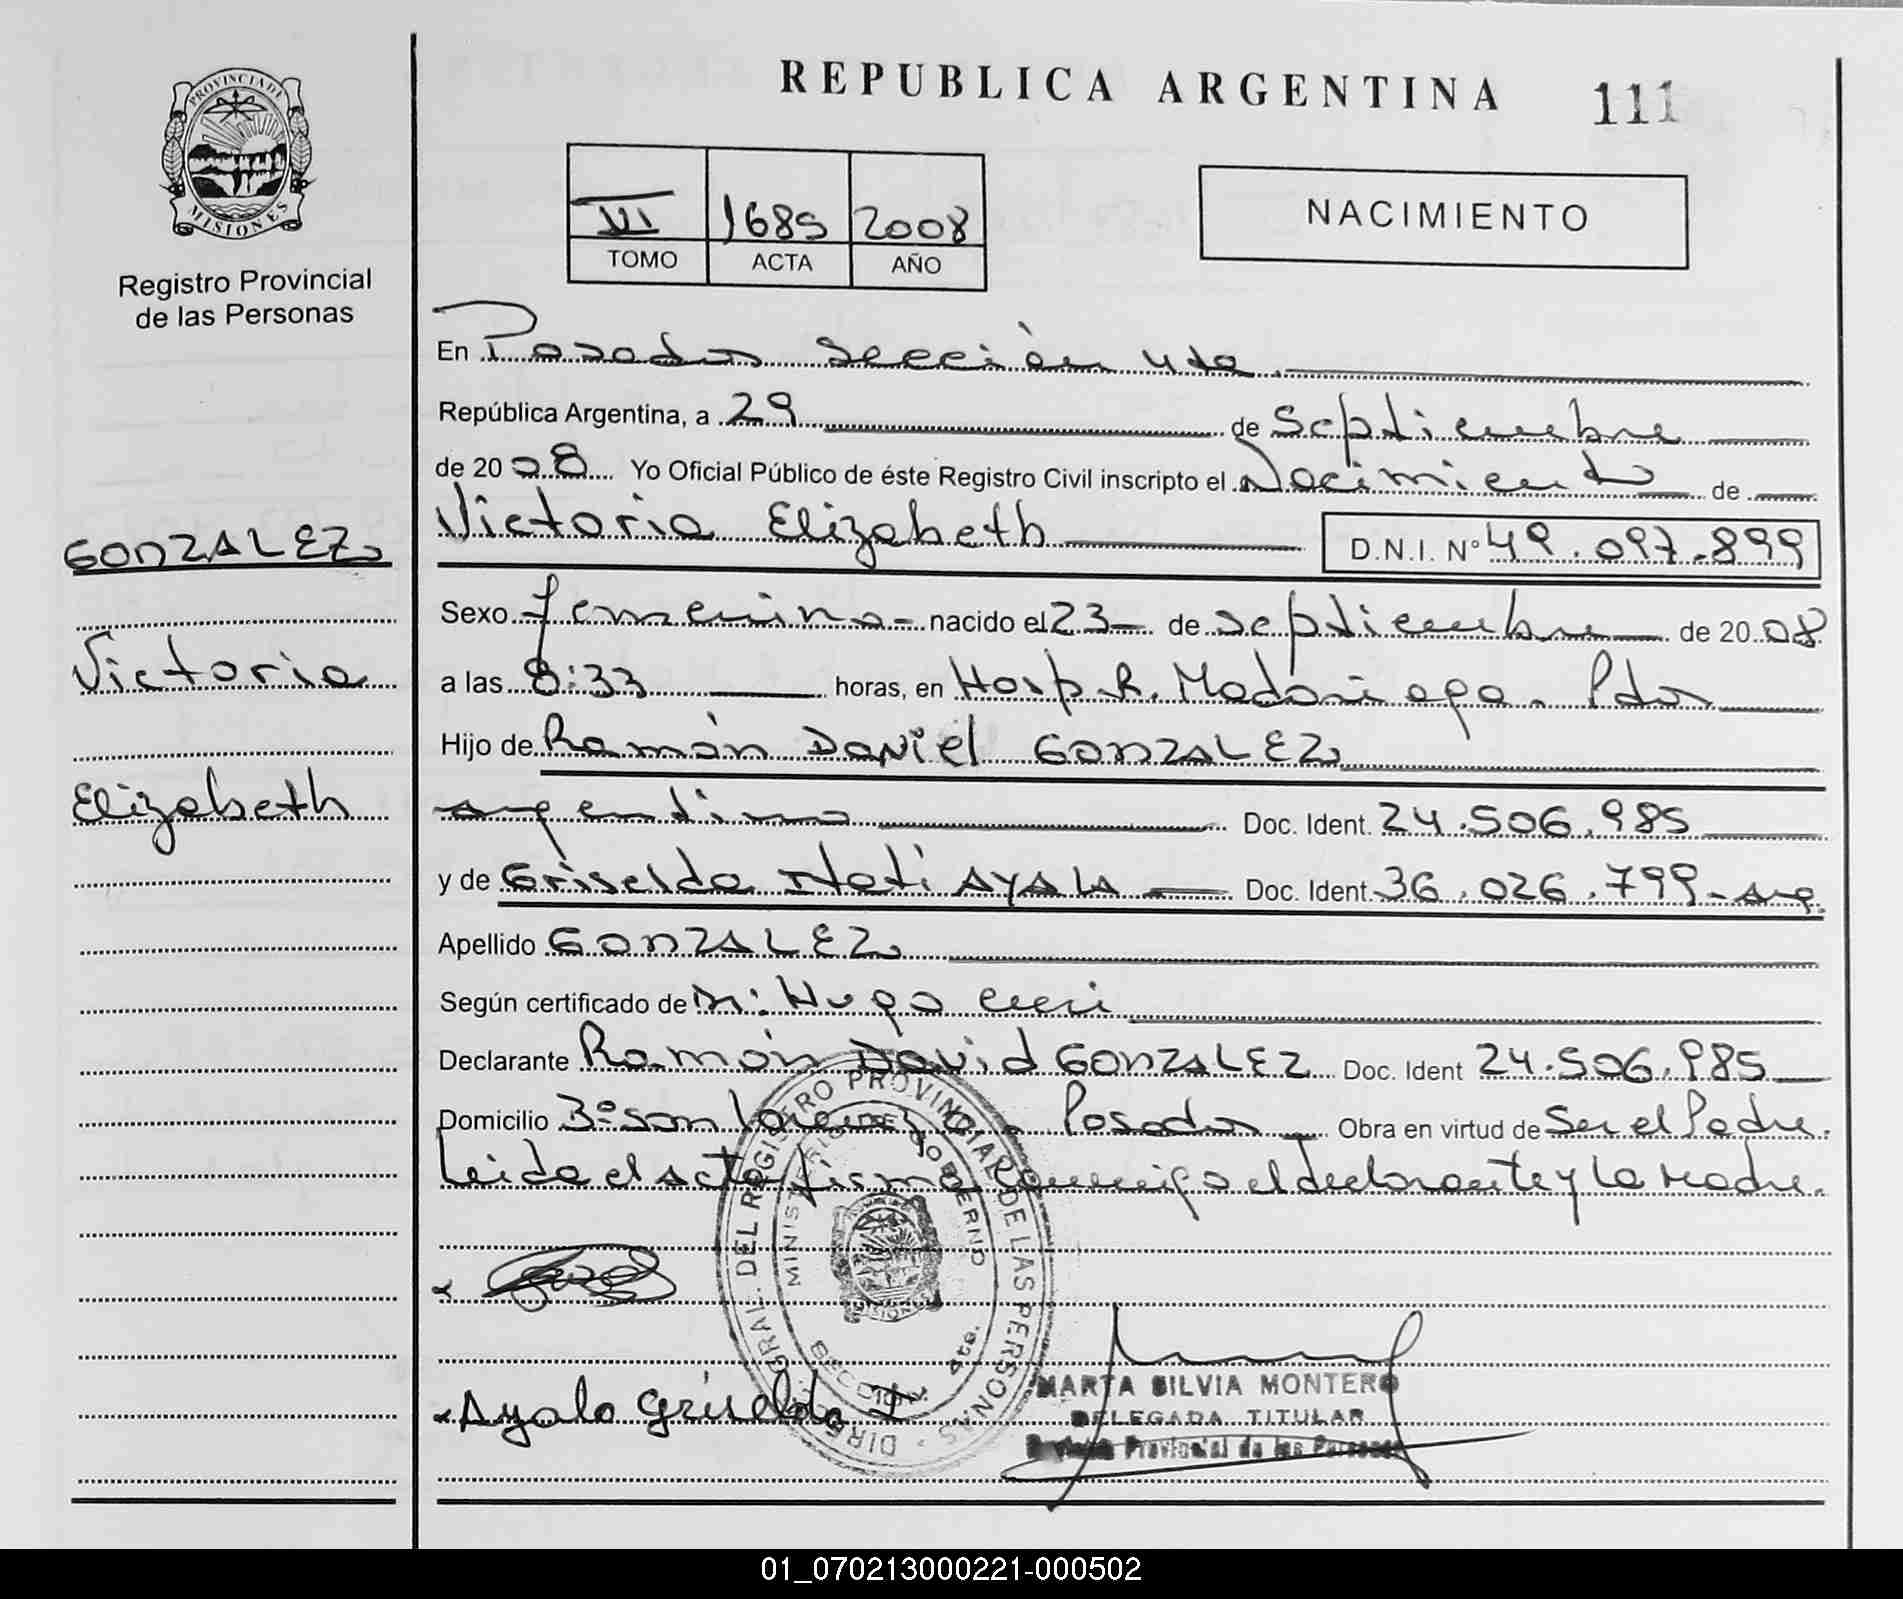 PROVINCIA DE
MISIONES
Registro Provincial
de las Personas
GONZALEZ
Victoria
Elizabeth
REPUBLICA ARGENTINA 111
III 1685 2008
TOMO ACTA AÑO
NACIMIENTO
En Posadas Sección 4ta.
República Argentina, a 29 de Septiembre
de 2008 Yo Oficial Público de éste Registro Civil inscripto el Nacimiento de
Victoria Elizabeth D.N.I. Nº 49.097.899
Sexo femenino- nacido el 23 de Septiembre de 2008
a las 8:33 horas, en Hosp. R. Madariaga. Pdas
Hijo de Ramón Daniel GONZALEZ
argentino Doc. Ident. 24.506.985
y de Griselda Itati AYALA Doc. Ident. 36.026.799-arg.
Apellido GONZALEZ
Según certificado de Dr: Hugo
Declarante Ramón David GONZALEZ Doc. Ident 24.506.985
Domicilio Bº San Lorenzo Posadas Obra en virtud de Ser el Padre.
Leida el acta firma conmigo el declarante y la Madre.
DIREC. GRAL. DEL REGISTRO PROVINCIAL DE LAS PERSONAS
MINISTERIO DE GOBIERNO
SECCION 4ta.
Ayala Griselda I
MARTA SILVIA MONTERO
DELEGADA TITULAR
Provincial de las Personas
01_070213000221-000502